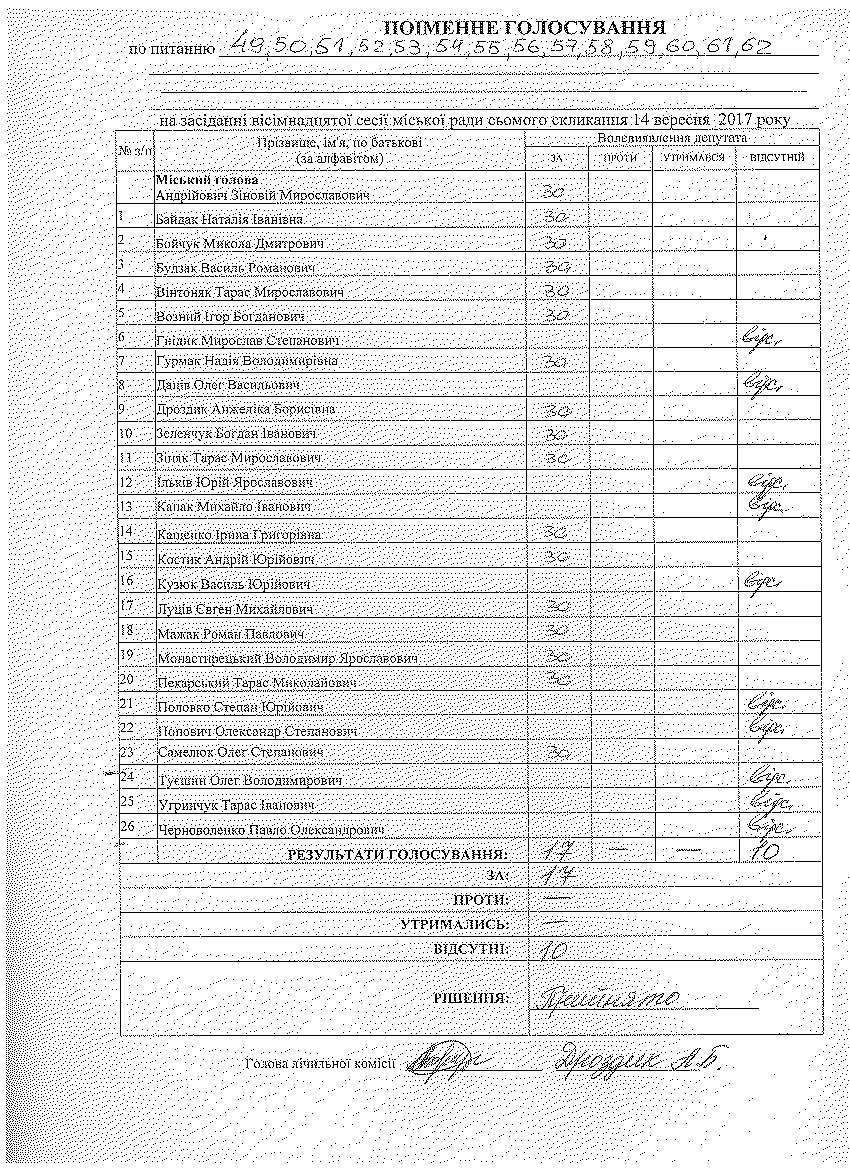 ПОІМЕННЕ ГОЛОСУВАННЯ
по питанню 49,50,51,52,53,54,55,56,57,58,59,60,61,62
на засіданні вісімнадцятої сесії міської ради сьомого скликання 14 вересня 2017 року
№ з/п Прізвище, ім'я, по батькові (за алфавітом) Волевиявлення депутата
ЗА ПРОТИ УТРИМАВСЯ ВІДСУТНІЙ
Міський голова
Андрійович Зіновій Мирославович за
1 Байдак Наталія Іванівна за
2 Бойчук Микола Дмитрович за
3 Будзак Василь Романович за
4 Вінтоняк Тарас Мирославович за
5 Возний Ігор Богданович за
6 Гнідик Мирослав Степанович відс.
7 Гурмак Надія Володимирівна за
8 Даців Олег Васильович відс.
9 Дроздик Анжеліка Борисівна за
10 Зеленчук Богдан Іванович за
11 Зіняк Тарас Мирославович за
12 Ільків Юрій Ярославович відс.
13 Капак Михайло Іванович відс.
14 Кащенко Ірина Григорівна за
15 Костик Андрій Юрійович за
16 Кузюк Василь Юрійович відс.
17 Луців Євген Михайлович за
18 Мажак Роман Павлович за
19 Монастирецький Володимир Ярославович за
20 Пекарський Тарас Миколайович за
21 Половко Степан Юрійович відс.
22 Попович Олександр Степанович відс.
23 Самелюк Олег Степанович за
24 Туєшин Олег Володимирович відс.
25 Угринчук Тарас Іванович відс.
26 Черноволенко Павло Олександрович відс.
РЕЗУЛЬТАТИ ГОЛОСУВАННЯ: 17 — — 10
ЗА: 17
ПРОТИ: —
УТРИМАЛИСЬ: —
ВІДСУТНІ: 10
РІШЕННЯ: Прийнято
Голова лічильної комісії Дроздик А.Б.